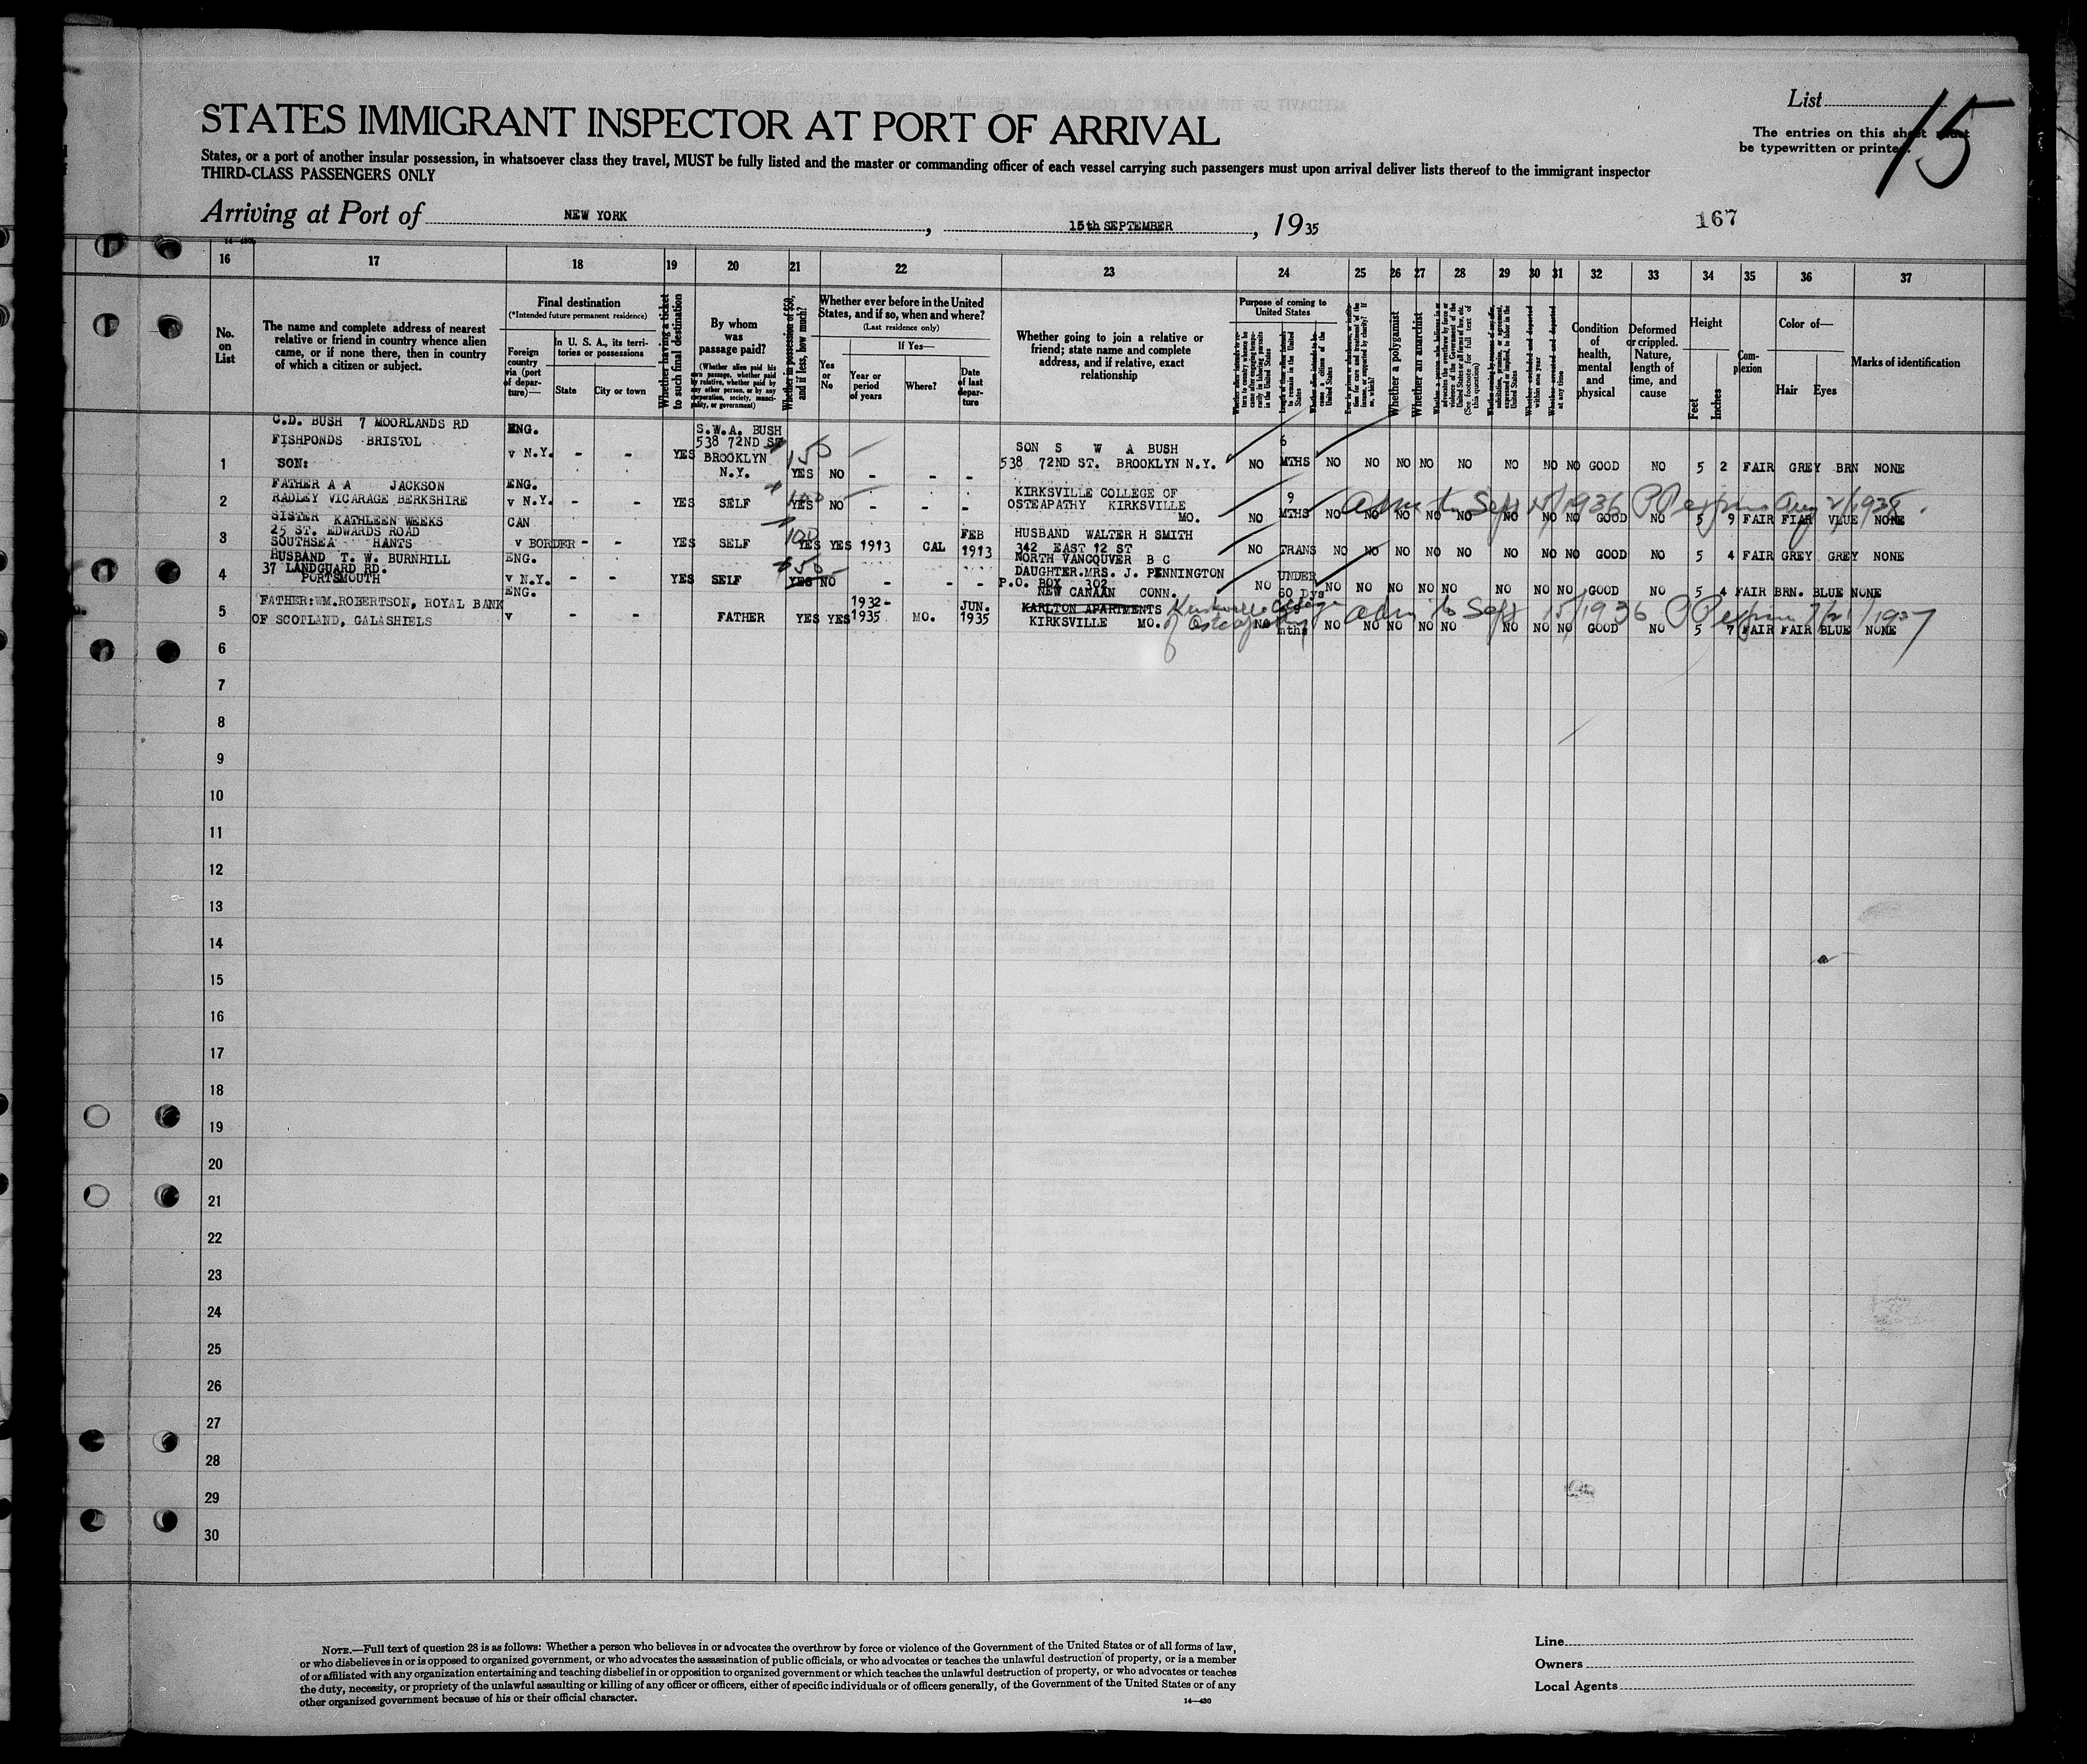 List
15
The entries on this sheet must
be typewritten or printed.
STATES IMMIGRANT INSPECTOR AT PORT OF ARRIVAL
States, or a port of another insular possession, in whatsoever class they travel, MUST be fully listed and the master or commanding officer of each vessel carrying such passengers must upon arrival deliver lists thereof to the immigrant inspector
THIRD-CLASS PASSENGERS ONLY
Arriving at Port of NEW YORK, 15th SEPTEMBER, 1935
167
16 17 18 19 20 21 22 23 24 25 26 27 28 29 30 31 32 33 34 35 36 37
No. on List
The name and complete address of nearest
relative or friend in country whence alien
came, or if none there, then in country
of which a citizen or subject.
Final destination
(*Intended future permanent residence)
Foreign country via (port of departure)—
In U. S. A., its territories or possessions
State
City or town
Whether having a ticket to such final destination
By whom was passage paid?
(Whether alien paid his own passage, whether paid by relative, whether paid by any other person, or by any corporation, society, municipality, or government)
Whether in possession of $50, and if less, how much?
Whether ever before in the United
States, and if so, when and where?
(Last residence only)
Yes or No
If Yes—
Year or period of years
Where?
Date of last departure
Whether going to join a relative or
friend; state name and complete
address, and if relative, exact
relationship
Purpose of coming to United States
Whether a polygamist
Whether an anarchist
(See footnote for full text of this question)
Condition of health, mental and physical
Deformed or crippled. Nature, length of time, and cause
Height
Feet
Inches
Complexion
Color of—
Hair
Eyes
Marks of identification
C.D. BUSH 7 MOORLANDS RD
FISHPONDS BRISTOL
SON:
1 ENG. v N.Y. - - YES S.W.A. BUSH 538 72ND ST BROOKLYN N.Y. 150 YES NO - - - SON S W A BUSH 538 72ND ST. BROOKLYN N.Y. NO 6 MTHS NO NO NO NO NO NO NO NO GOOD NO 5 2 FAIR GREY BRN NONE
FATHER A A JACKSON
RADLEY VICARAGE BERKSHIRE
2 ENG. v N.Y. - - YES SELF 100 YES NO - - - KIRKSVILLE COLLEGE OF OSTEAPATHY KIRKSVILLE MO. NO 9 MTHS NO NO NO NO NO NO NO NO GOOD NO 5 9 FAIR FIAR VLUE NONE
Adm to Sept 15/1936 PP expires Aug 2/1938
SISTER KATHLEEN WEEKS
25 ST. EDWARDS ROAD
SOUTHSEA HANTS
3 CAN v BORDER - - YES SELF 100 YES YES 1913 CAL FEB 1913 HUSBAND WALTER H SMITH 342 EAST 12 ST NORTH VANCOUVER B C NO TRANS NO NO NO NO NO NO NO NO GOOD NO 5 4 FAIR GREY GREY NONE
HUSBAND T. W. BURNHILL
37 LANDGUARD RD.
PORTSMOUTH
4 ENG. v N.Y. - - YES SELF $50 YES NO - - - DAUGHTER.MRS. J. PENNINGTON P.O. BOX 302 NEW CANAAN CONN. NO UNDER 60 Dys NO NO NO NO NO NO NO NO GOOD NO 5 4 FAIR BRN. BLUE NONE
FATHER:WM.ROBERTSON, ROYAL BANK
OF SCOTLAND, GALASHIELS
5 ENG. v - - FATHER YES YES 1932-1935 MO. JUN. 1935 KARLTON APARTMENTS KIRKSVILLE MO. Kirksville College of Osteopathy NO mths NO NO NO NO NO NO NO NO GOOD NO 5 7 FAIR FAIR BLUE NONE
Adm to Sept 15/1936 PP expires 7/21/1937
6
7
8
9
10
11
12
13
14
15
16
17
18
19
20
21
22
23
24
25
26
27
28
29
30
NOTE.—Full text of question 28 is as follows: Whether a person who believes in or advocates the overthrow by force or violence of the Government of the United States or of all forms of law,
or who disbelieves in or is opposed to organized government, or who advocates the assassination of public officials, or who advocates or teaches the unlawful destruction of property, or is a member
of or affiliated with any organization entertaining and teaching disbelief in or opposition to organized government or which teaches the unlawful destruction of property, or who advocates or teaches
the duty, necessity, or propriety of the unlawful assaulting or killing of any officer or officers, either of specific individuals or of officers generally, of the Government of the United States or of any
other organized government because of his or their official character.
14—430
Line
Owners
Local Agents